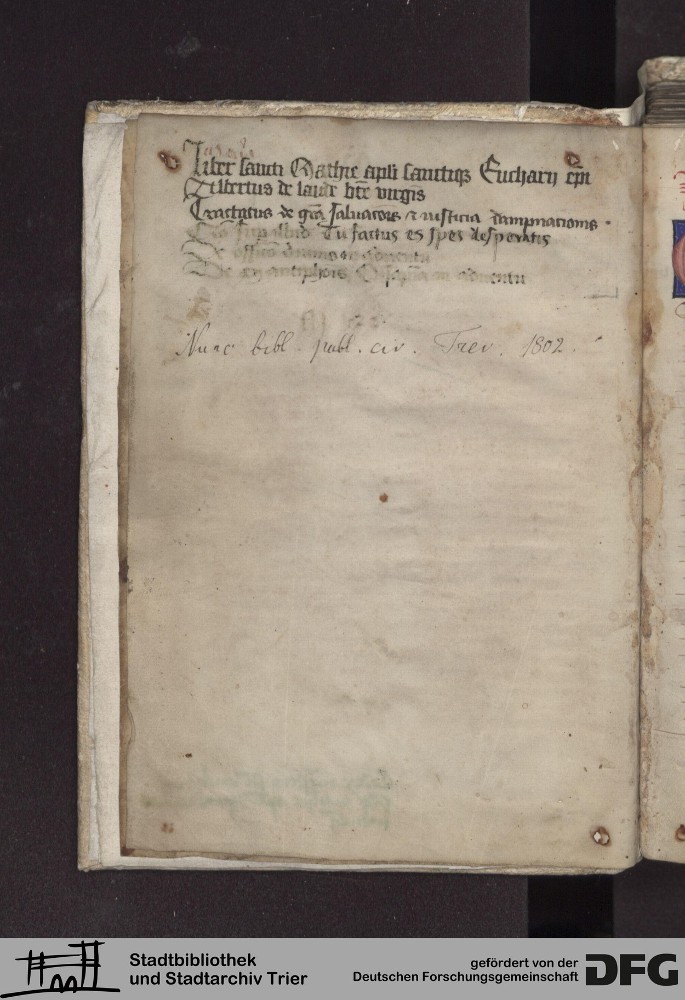 Liber sancti Mathie apli sanctiqz Eucharij epi
Eilbertus de laude bte virgis
Tractatus de gra saluatoris & iusticia dampnacionis
Tu factus es spes desperatis
De officio in aduentu
De antiphonis in aduentu
Nunc bibl. publ. civ. Trev. 1802.
Stadtbibliothek
und Stadtarchiv Trier
gefördert von der
Deutschen Forschungsgemeinschaft
DFG